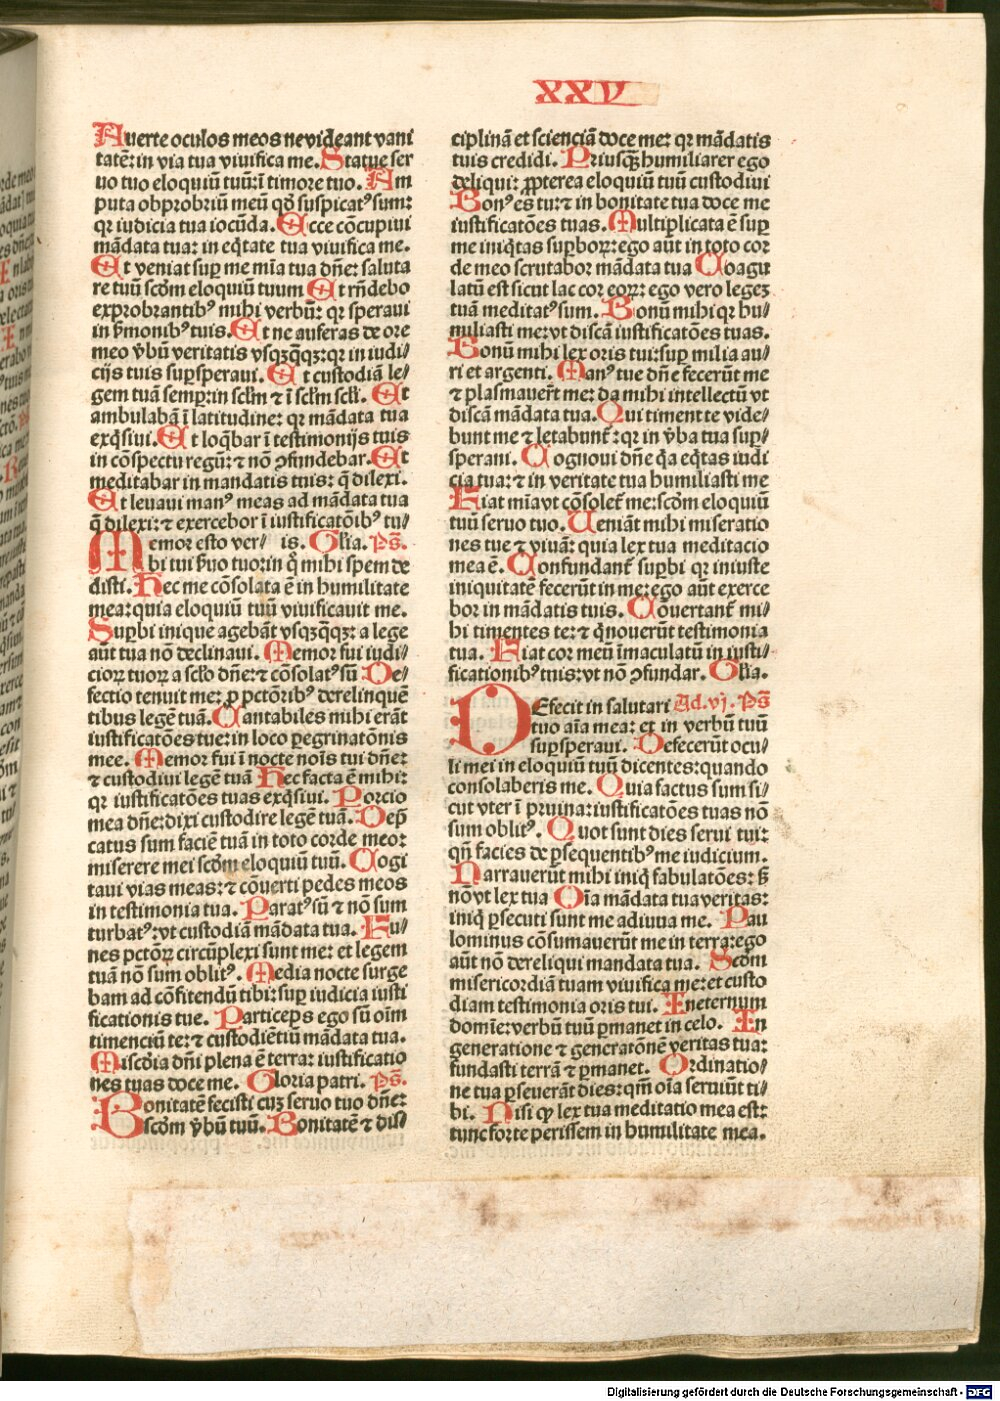 XXV
Auerte oculos meos ne videant vani
tatē: in via tua viuifica me. Statue ser
uo tuo eloquiū tuū: ī timore tuo. Am
puta obprobriū meū qđ suspicatꝰ sum:
qꝛ iudicia tua iocūda. Ecce cōcupiui
mādata tua: in eq̄tate tua viuifica me.
Et veniat suꝑ me mīa tua dñe: saluta
re tuū scđm eloquiū tuum Et rñdebo
exprobrantibꝰ mihi verbū: qꝛ speraui
in ẜmonibꝰ tuis. Et ne auferas de ore
meo v̓bū veritatis vsqꝫq̄qꝫ: qꝛ in iudi⸗
cijs tuis suꝑsperaui. Et custodiā le⸗
gem tuā semꝑ: in scłm ⁊ ī scłm scłi. Et
ambulabā ī latitudine: qꝛ mādata tua
exq̄siui. Et loq̄bar ī testimonijs tuis
in cōspectu regū: ⁊ nō ꝯfundebar. Et
meditabar in mandatis tuis: q̄ dilexi.
Et leuaui manꝰ meas ad mādata tua
q̄ dilexi: ⁊ exercebor ī iustificatōibꝰ tu⸗
Memor esto ver⸗ is. Głia. Ps̄.
bi tui ẜuo tuo: in q̊ mihi spem de
disti. Hec me cōsolata ē in humilitate
mea: quia eloquiū tuū viuificauit me.
Suꝑbi inique agebāt vsqꝫq̄qꝫ: a lege
aūt tua nō declinaui. Memor fui iudi⸗
cioꝝ tuoꝝ a scło dñe: ⁊ cōsolatꝰ sū De⸗
fectio tenuit me: ꝓ pctōribꝰ derelinquē
tibus legē tuā. Cantabiles mihi erāt
iustificatōes tue: in loco ꝑegrinatōnis
mee. Memor fui ī nocte noīs tui dñe:
⁊ custodiui legē tuā Hec facta ē mihi:
qꝛ iustificatōes tuas exq̄siui. Porcio
mea dñe: dixi custodire legē tuā. Dep̄
catus sum faciē tuā in toto corde meo:
miserere mei scđm eloquiū tuū. Cogi
taui vias meas: ⁊ cōuerti pedes meos
in testimonia tua. Paratꝰ sū ⁊ nō sum
turbatꝰ: vt custodiā mādata tua. Fu⸗
nes pctōꝝ circūplexi sunt me: et legem
tuā nō sum oblitꝰ. Media nocte surge
bam ad cōfitendū tibi: suꝑ iudicia iusti
ficationis tue. Particeps ego sū oīm
timenciū te: ⁊ custodiētiū mādata tua.
Miscđia dñi plena ē terra: iustificatio
nes tuas doce me. Gloria patri. Ps̄.
Bonitatē fecisti cuꝫ seruo tuo dñe:
scđm v̓bū tuū. Bonitatē ⁊ dis⸗
ciplinā et scienciā doce me: qꝛ mādatis
tuis credidi. Priusq̄ꝫ humiliarer ego
deliqui: ꝓpterea eloquiū tuū custodiui
Bonꝰ es tu: ⁊ in bonitate tua doce me
iustificatōes tuas. Multiplicata ē suꝑ
me iniq̄tas suꝑboꝝ: ego aūt in toto cor
de meo scrutabor mādata tua Coagu
latū est sicut lac cor eoꝝ: ego vero legeꝫ
tuā meditatꝰ sum. Bonū mihi qꝛ hu⸗
miliasti me: vt discā iustificatōes tuas.
Bonū mihi lex oris tui: suꝑ milia au⸗
ri et argenti. Manꝰ tue dñe fecerūt me
⁊ plasmauerūt me: da mihi intellectū vt
discā mādata tua. Qui timent te vide⸗
bunt me ⁊ letabunt᷑: qꝛ in v̓ba tua suꝑ⸗
speraui. Cognoui dñe q̄a eq̄tas iudi
cia tua: ⁊ in veritate tua humiliasti me
Fiat mīa vt cōsolet᷑ me: scđm eloquiū
tuū seruo tuo. Ueniāt mihi miseratio
nes tue ⁊ viuā: quia lex tua meditacio
mea ē. Confundant᷑ suꝑbi qꝛ iniuste
iniquitatē fecerūt in me: ego aūt exerce
bor in mādatis tuis. Cōuertant᷑ mi⸗
hi timentes te: ⁊ q̄ nouerūt testimonia
tua. Fiat cor meū īmaculatū in iusti⸗
ficationibꝰ tuis: vt nō ꝯfundar. Głia.
DEfecit in salutari Ad. vj. Ps̄
tuo aīa mea: et in verbū tuū
suꝑsperaui. Defecerūt ocu⸗
li mei in eloquiū tuū dicentes: quando
consolaberis me. Quia factus sum si⸗
cut vter ī pruina: iustificatōes tuas nō
sum oblitꝰ. Quot sunt dies serui tui:
qn̄ facies de ꝑsequentibꝰ me iudicium.
Narrauerūt mihi iniq̄ fabulatōes: ſꝫ
nō vt lex tua Oīa mādata tua veritas:
iniq̄ ꝑsecuti sunt me adiuua me. Pau
lominus cōsumauerūt me in terra: ego
aūt nō dereliqui mandata tua. Scđm
misericordiā tuam viuifica me: et custo
diam testimonia oris tui. Ineternum
domīe: verbū tuū ꝑmanet in celo. In
generatione ⁊ generatōnē veritas tua:
fundasti terrā ⁊ ꝑmanet. Ordinatio⸗
ne tua ꝑseuerāt dies: qm̄ oīa seruiūt ti⸗
bi. Nisi ꝙ lex tua meditatio mea est:
tunc forte perissem in humilitate mea.
Digitalisierung gefördert durch die Deutsche Forschungsgemeinschaft - DFG